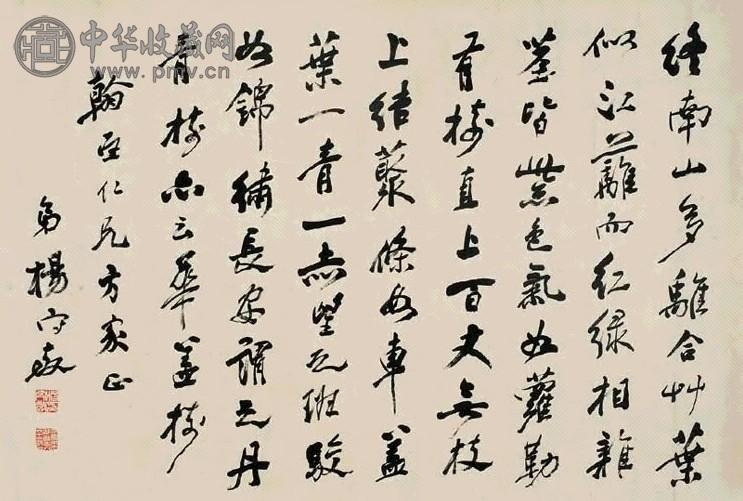 終南山多離合艸葉
似江蘺而紅綠相雜
莖皆紫色氣如蘿勒
有樹直上百丈無枝
上結藂條如車蓋
葉一青一赤望之班駁
如錦繡長安謂之丹
青樹亦云華蓋樹
翰臣仁兄方家正
弟楊守敬
中华收藏网
www.pmv.cn